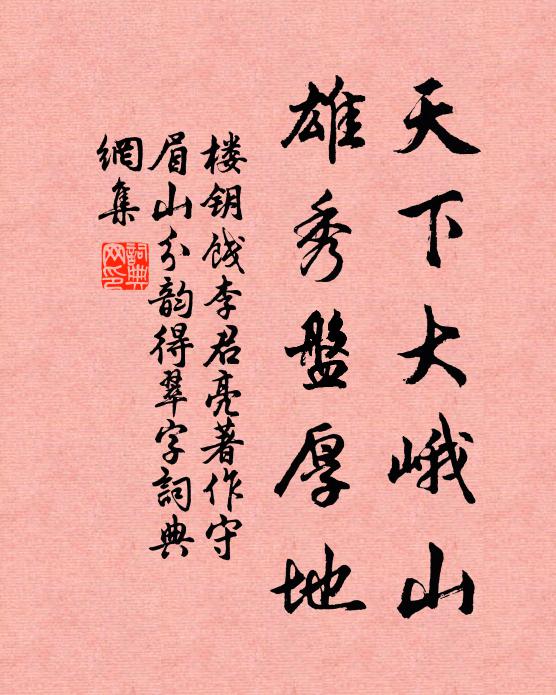 天下大峨山
雄秀盤厚地
楼钥饯李君亮著作守
眉山分韵得翠字詞典
網集
詞典網印